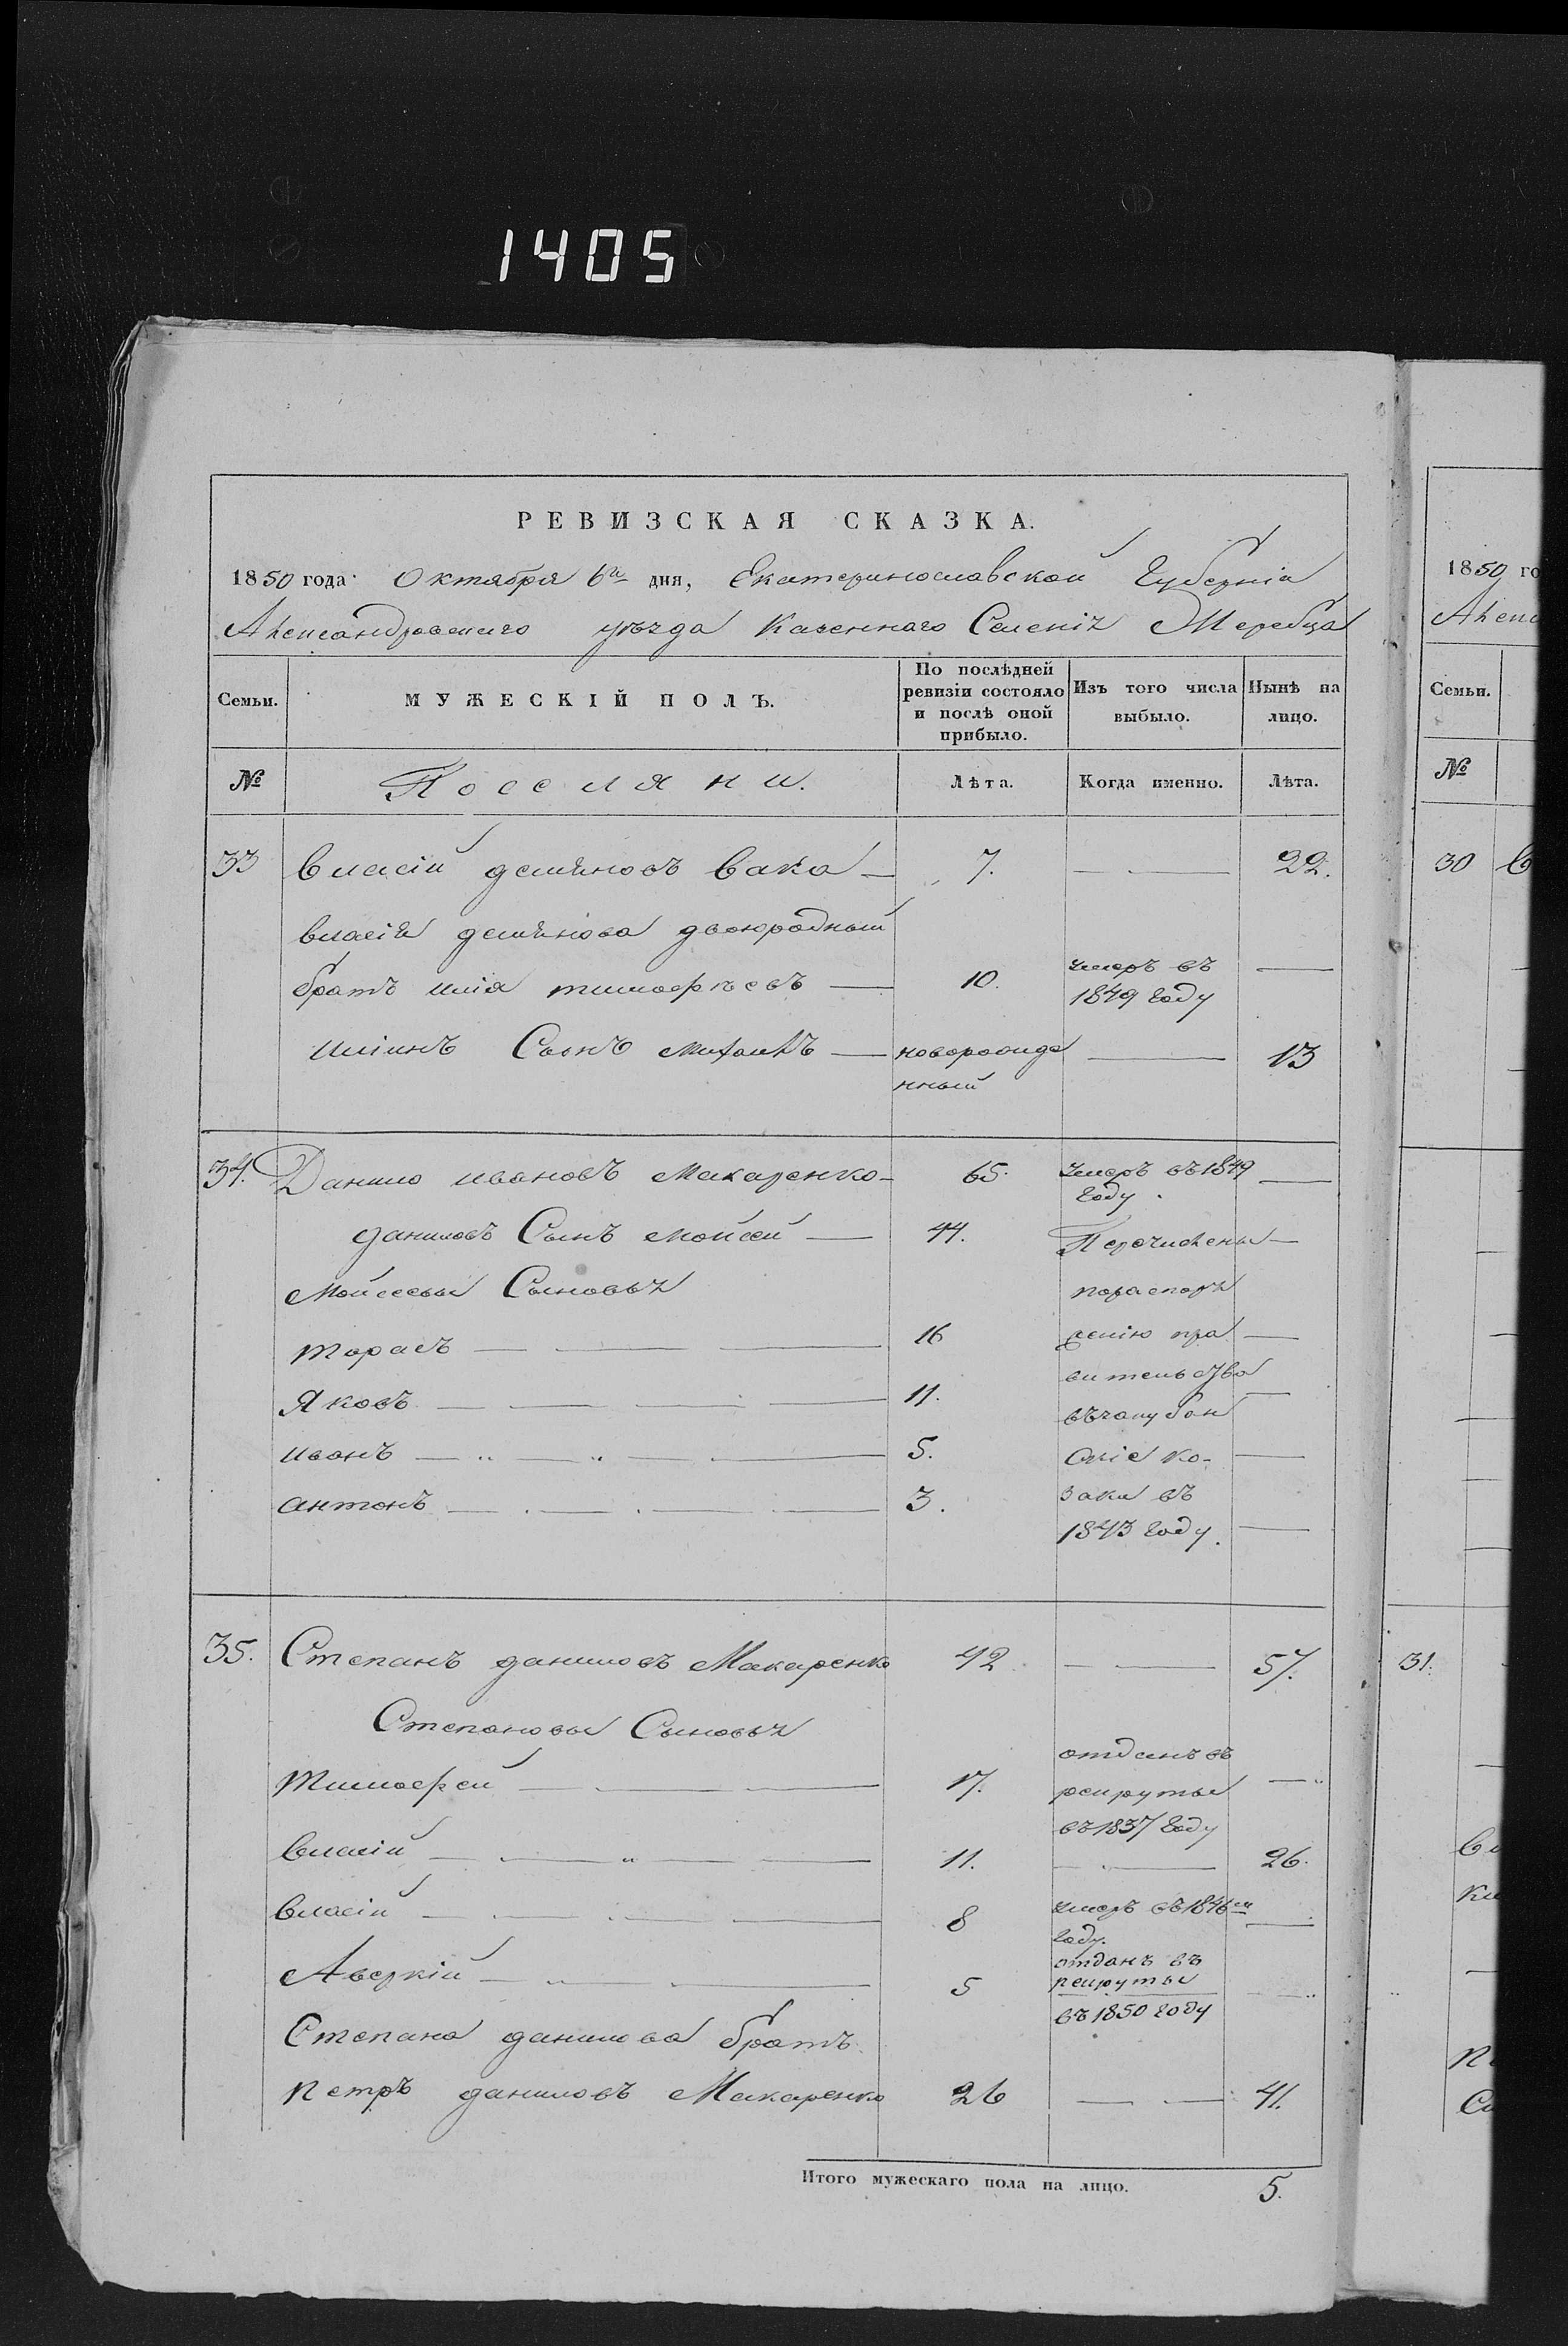 1405
РЕВИЗСКАЯ СКАЗКА.
1850 года Октября 6го дня, Екатеринославской Губерніи
Александровскаго уѣзда Казеннаго Селенія Жеребца
Семьи. МУЖЕСКІЙ ПОЛЪ. По послѣдней ревизіи состояло и послѣ оной прибыло. Изъ того числа выбыло. Нынѣ на лицо.
№ Поселяни. Лѣта. Когда именно. Лѣта.
33 Власій демяновъ Вака 7. 22.
власія демянова двоюродный
братъ илія тимофѣевъ 10. умеръ въ 1849 году
иліинъ Сынъ михаилъ новорожде нный 13
34. Данило ивановъ Макаренко 65. умеръ въ 1849 году.
даниловъ Сынъ мойсей 44. Перечислены
мойсеевы Сыновья пораспоря
тарасъ 16 женію пра
вительства
Яковъ 11.
въчакубан
иванъ 5. скіе ко-
антонъ 3. заки въ
1843 году.
35. Степанъ даниловъ Макаренко 42 57.
Степановы Сыновья
Тимофей 17. отданъ въ рекруты въ 1837 году
Власій 11. 26.
Власій 8 умеръ въ 1846м году.
Аверкій 5 отданъ въ рекруты въ 1850 году
Степана данилова братъ
петръ даниловъ Макаренко 26 41.
Итого мужескаго пола на лицо. 5.
1850 го
Алекс
Семьи.
№
30 В
31.
Вл
ки
П
Сы